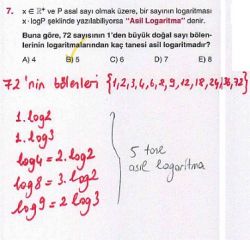 7. x ∈ ℝ⁺ ve P asal sayı olmak üzere, bir sayının logaritması
x·logP şeklinde yazılabiliyorsa "Asil Logaritma" denir.
Buna göre, 72 sayısının 1'den büyük doğal sayı bölen-
lerinin logaritmalarından kaç tanesi asil logaritmadır?
A) 4 B) 5 C) 6 D) 7 E) 8
72'nin bölenleri {1,2,3,4,6,8,9,12,18,24,36,72}
1.log2
1.log3
log4 = 2.log2
log8 = 3.log2
log9 = 2 log3
5 tane
asil logaritma